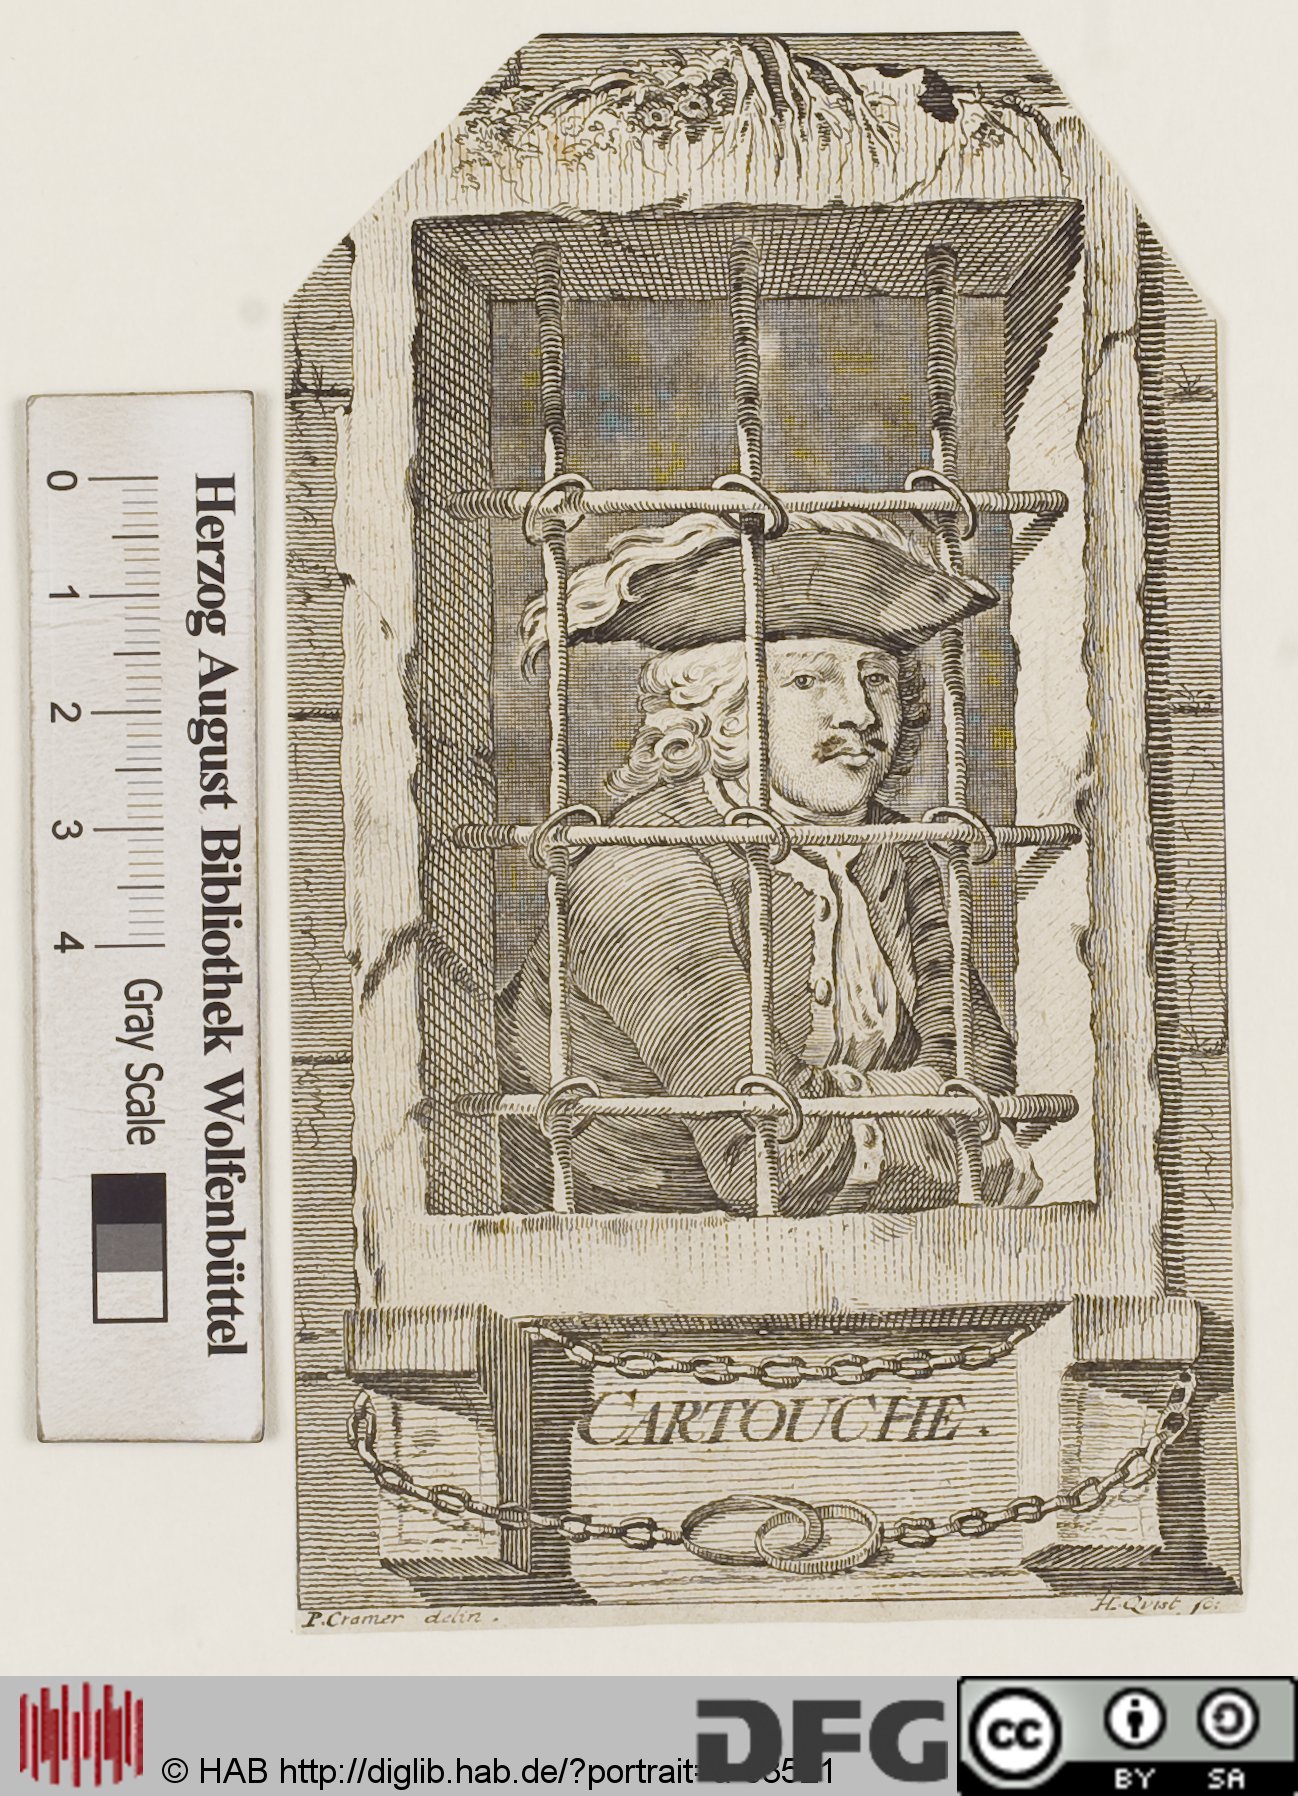 CARTOUCHE.
P. Cramer delin.
H. Qvist sc:
Herzog August Bibliothek Wolfenbüttel
0 1 2 3 4 Gray Scale
© HAB http://diglib.hab.de/?portrait=
DFG
cc
BY SA